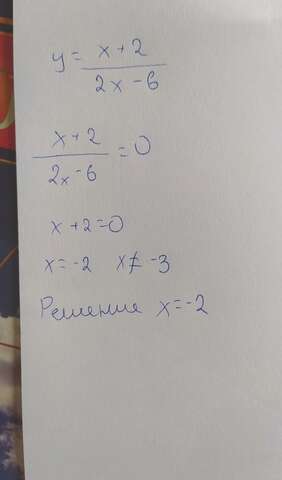 y = x + 2 / 2x - 6
x + 2 / 2x - 6 = 0
x + 2 = 0
x = -2 x ≠ -3
Решение x = -2